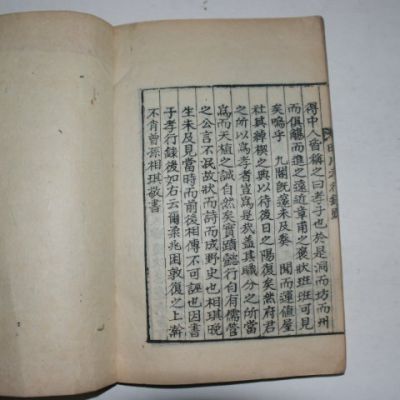 得中人皆稱之曰孝子也於是洞而坊而州
而俱籲而進之遠近章甫之褒狀班班可見
矣嗚乎 九闕旣邃未及獒 聞而運値屋
社其綽楔之典以待後日之陽復矣然府君
之所以爲孝者豈爲是哉盖其職分之所當
爲而天植之誠自然矣實蹟懿行自有儒管
之公言不泯故狀而詩而成野史也相琪晚
生未及見當時而前後相傳不可誣也因書
于孝行錄後如右云爾柔兆困敦復之上澣
不肖曾孫相琪敬書